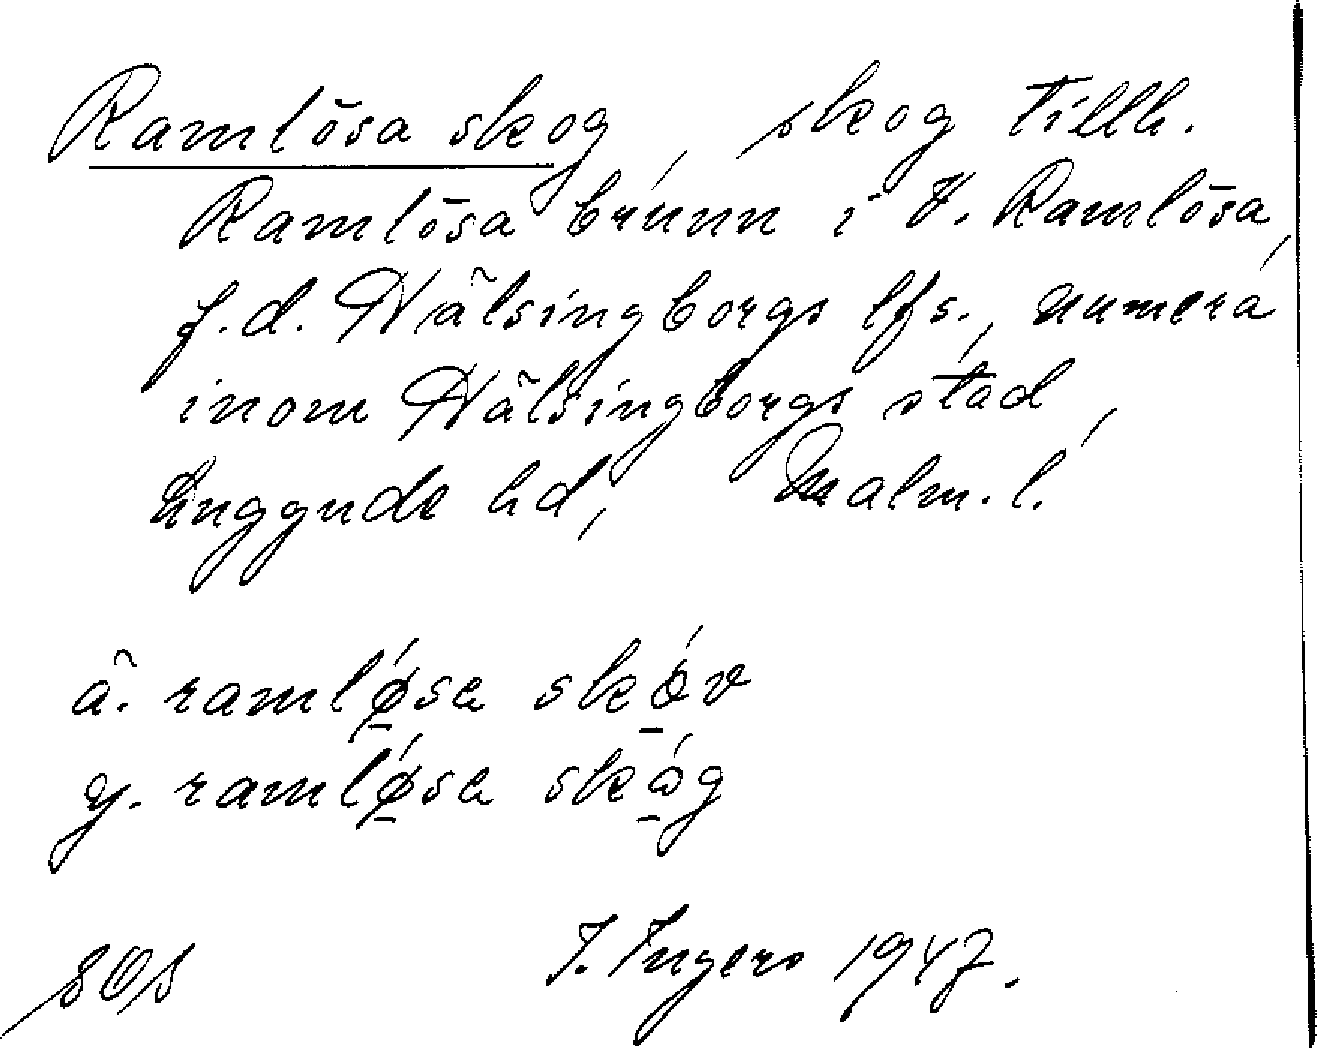 Ramlösa skog, skog tillh.
Ramlösa brunn i V. Ramlösa,
f.d. Hälsingborgs lfs., numera
inom Hälsingborgs stad,
Luggude hd, Malm. l.
ä. ramlǿ̠sa skó̠v
y. ramlǿ̠sa skó̠g
I. Ingers 1947.